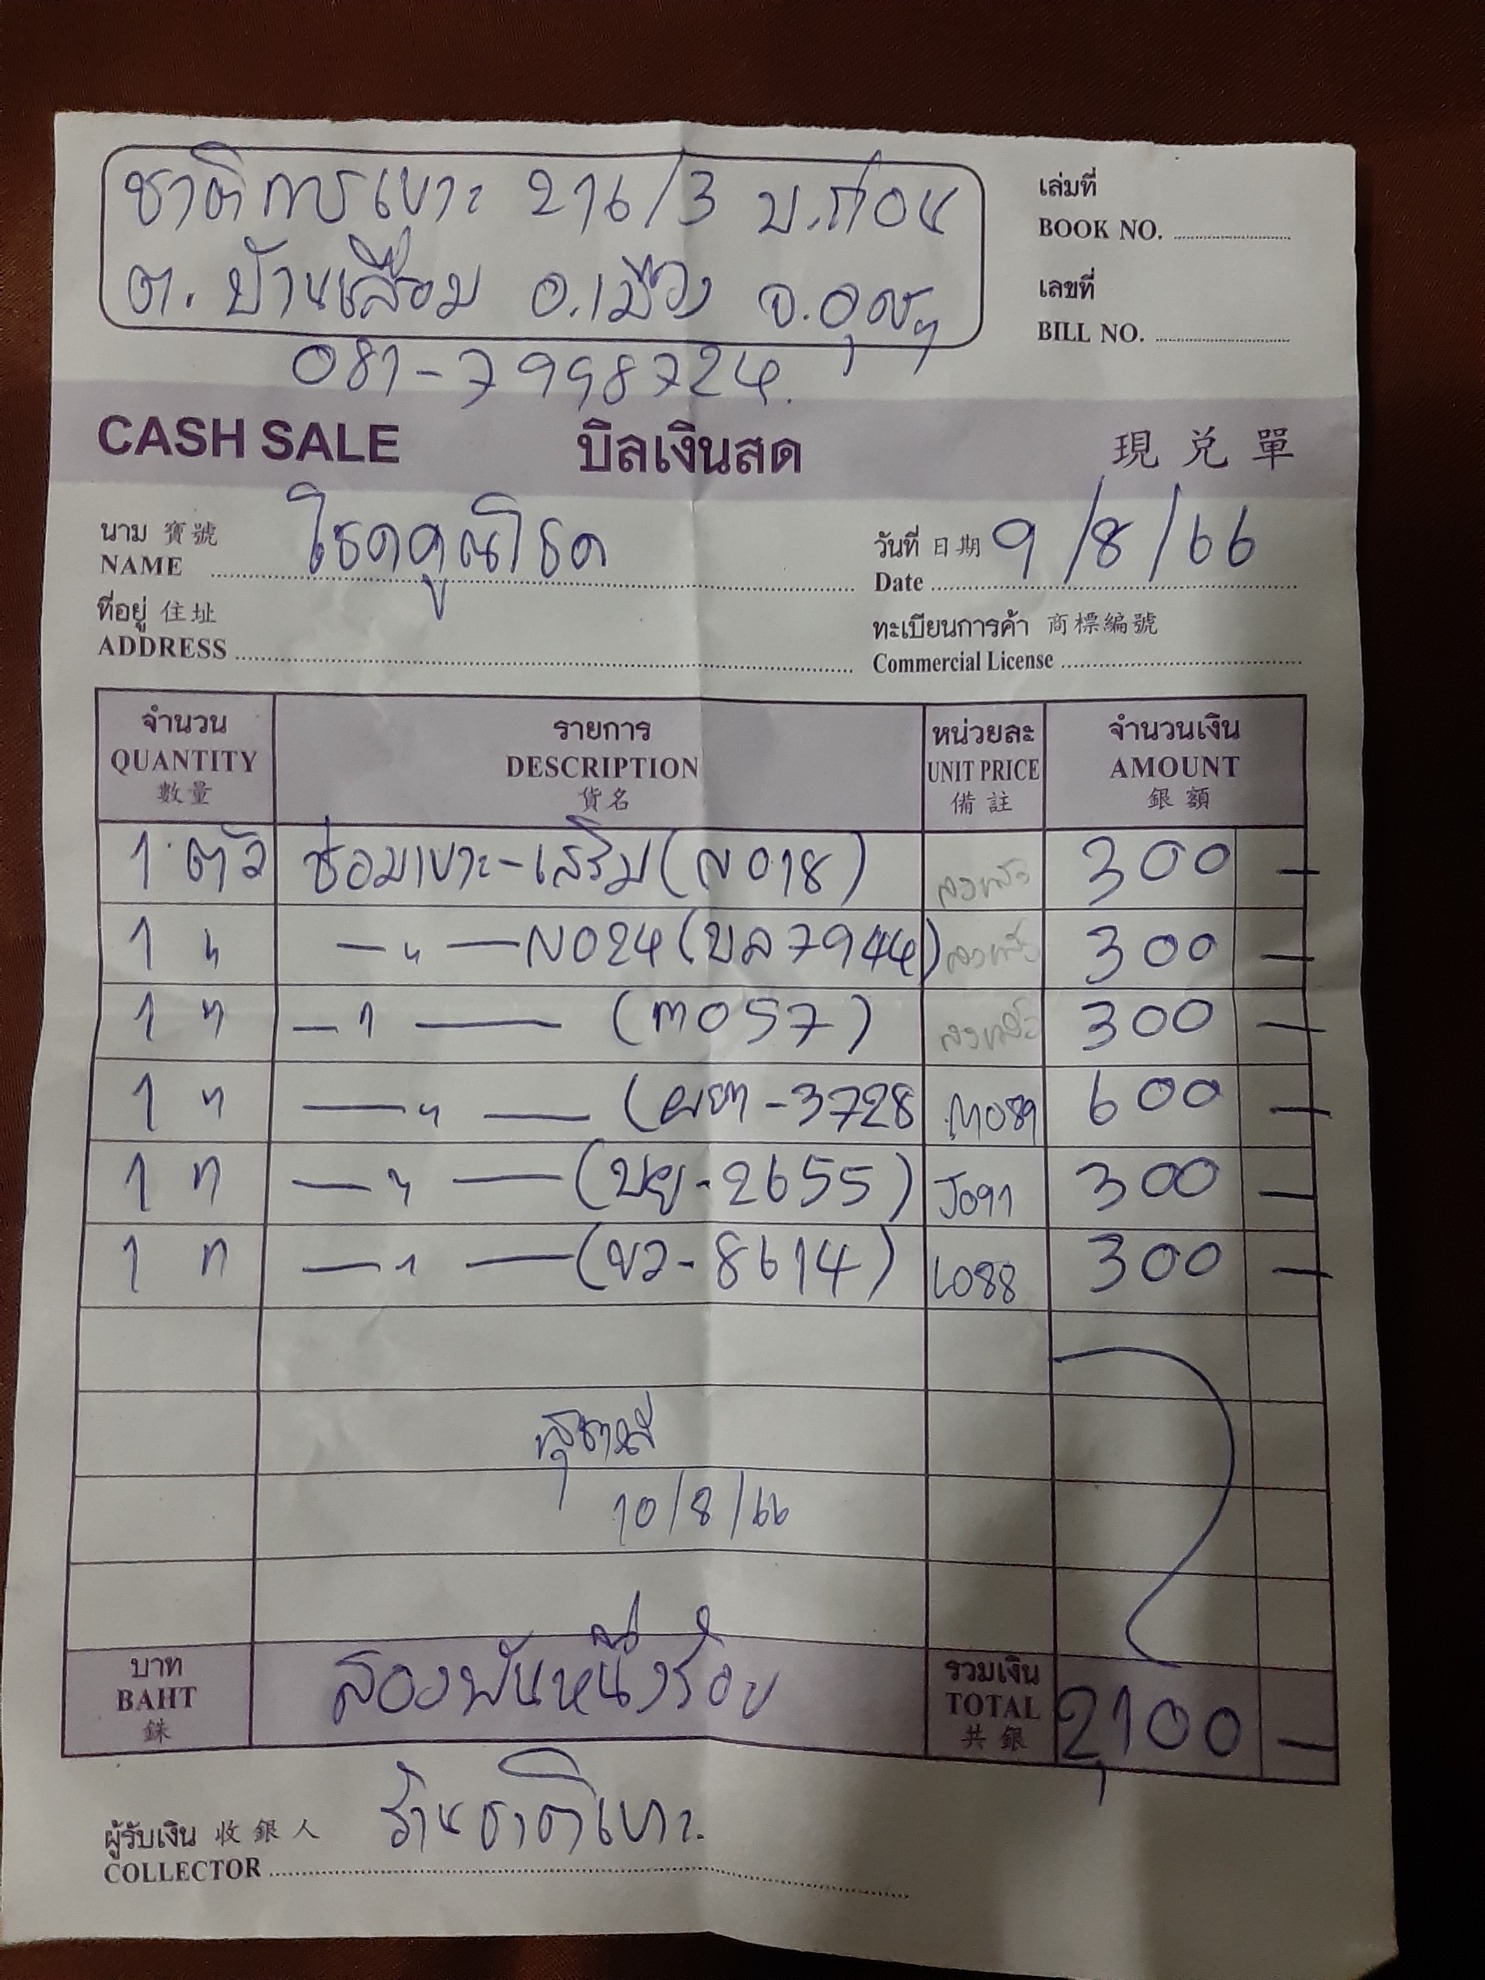 ชาติการเบาะ 216/3 บ.ก่อน
ต.บ้านเลื่อม อ.เมือง จ.อุดรฯ
081-7998724.
เล่มที่
BOOK NO.
เลขที่
BILL NO.
CASH SALE บิลเงินสด 現兑單
นาม 寶號 NAME โชคคูณโชค
วันที่ 日期 Date 9/8/66
ที่อยู่ 住址
ADDRESS
ทะเบียนการค้า 商標編號
Commercial License
จำนวน รายการ หน่วยละ จำนวนเงิน
QUANTITY DESCRIPTION UNIT PRICE AMOUNT
數量 貨名 備註 銀額
1 ตัว ซ่อมเบาะ-เสริม (N018) 300 —
1 " —"— N024 (บล 7944) 300 —
1 " —"— (M057) 300 —
1 " —"— (ผยก-3728 M089 600 —
1 " —"— (บย-2655) J091 300 —
1 " —"— (บว-8614) L088 300 —
10/8/66
บาท
BAHT สองพันหนึ่งร้อย
銖
รวมเงิน
TOTAL 2,100 —
共銀
ผู้รับเงิน 收銀人 ร้านชาติเบาะ
COLLECTOR